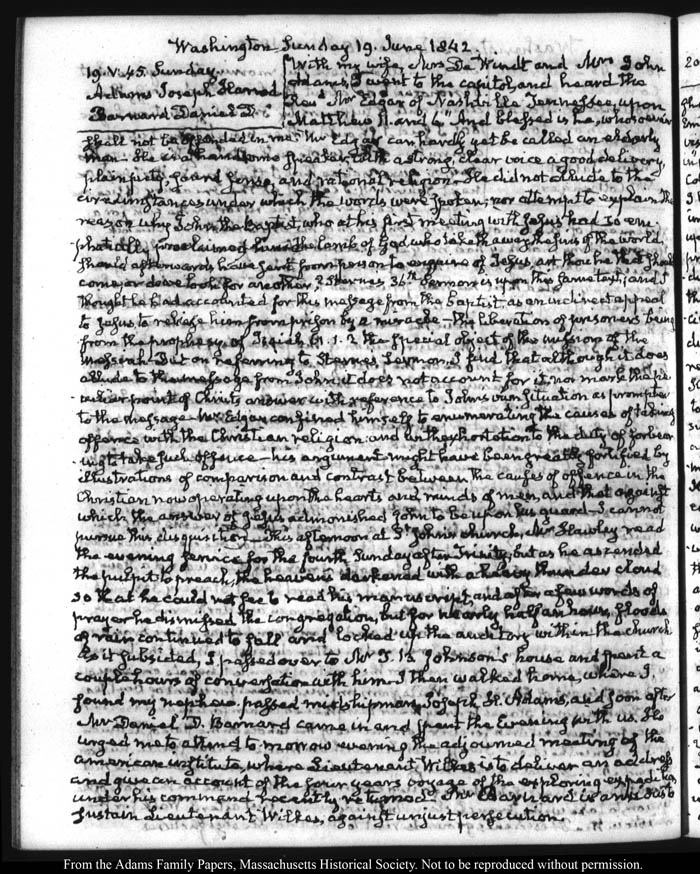 Washington Sunday 19. June 1842.
19. V:45. Sunday
Adams Joseph Harrod
Barnard Daniel D.
With my wife, Mrs De Windt and Mrs John
Adams, I went to the capitol, and heard the
Rev. Mr Edgar of Nashville Tennessee, upon
Matthew 11. and 6. "And blessed is he, whosoever
shall not be offended in me." Mr Edgar can hardly yet be called an elderly
man. He is a handsome speaker, with a strong, clear voice a good delivery,
plain piety, good sense, and rational religion. He did not allude to the
circumstances under which the words were spoken; nor attempt to explain the
reason why John the Baptist, who at his first meeting with Jesus had so em-
phatically proclaimed him the lamb of God, who taketh away the sins of the world,
should afterwards have sent from prison to enquire of Jesus, art thou he that should
come, or do we look for another? Sterne's 36th Sermon is upon this same text; and I
thought he had accounted for this message from the Baptist as an indirect appeal
to Jesus, to release him from prison by a miracle—the liberation of prisoners being
from the prophesy of Isaiah 61. 1. 2 the special object of the mission of the
Messiah. But on referring to Sterne's Sermon, I find that although it does
allude to the message from John, it does not account for it, nor mark the pe-
culiar point of Christ's answer with reference to John's own situation as prompter
to the message—Mr Edgar confined himself to enumerating the causes of taking
offence with the Christian religion: and in the exhortation to the duty of forbear-
ing to take such offence—his argument might have been greatly fortified by
illustrations of comparison and contrast between the causes of offence in the
Christian now operating upon the hearts and minds of men, and that against
which the answer of Jesus admonished John to be upon his guard. I cannot
pursue this disquisition. This afternoon at St John's church, Mr Hawley read
the evening service for the fourth Sunday after Trinity, but as he ascended
the pulpit to preach, the heavens darkened with a heavy thunder cloud
so that he could not see to read his manuscript, and after a few words of
prayer he dismissed the congregation, but for nearly half an hour, floods
of rain continued to fall and locked up the auditory within the church
As it subsided, I passed over to Mr Johnson's house and spent a
couple hours of conversation with him. I then walked home, where I
found my nephew passed midshipman Joseph H. Adams, and soon after
Mr Daniel D. Barnard came in and spent the Evening with us. He
urged me to attend to morrow evening the adjourned meeting of the
American institute, where Lieutenant Wilkes is to deliver an address
and give an account of the four years voyage of the exploring expedition
under his command recently returned. Mr Barnard is anxious to
sustain Lieutenant Wilkes, against unjust persecution.
From the Adams Family Papers, Massachusetts Historical Society. Not to be reproduced without permission.